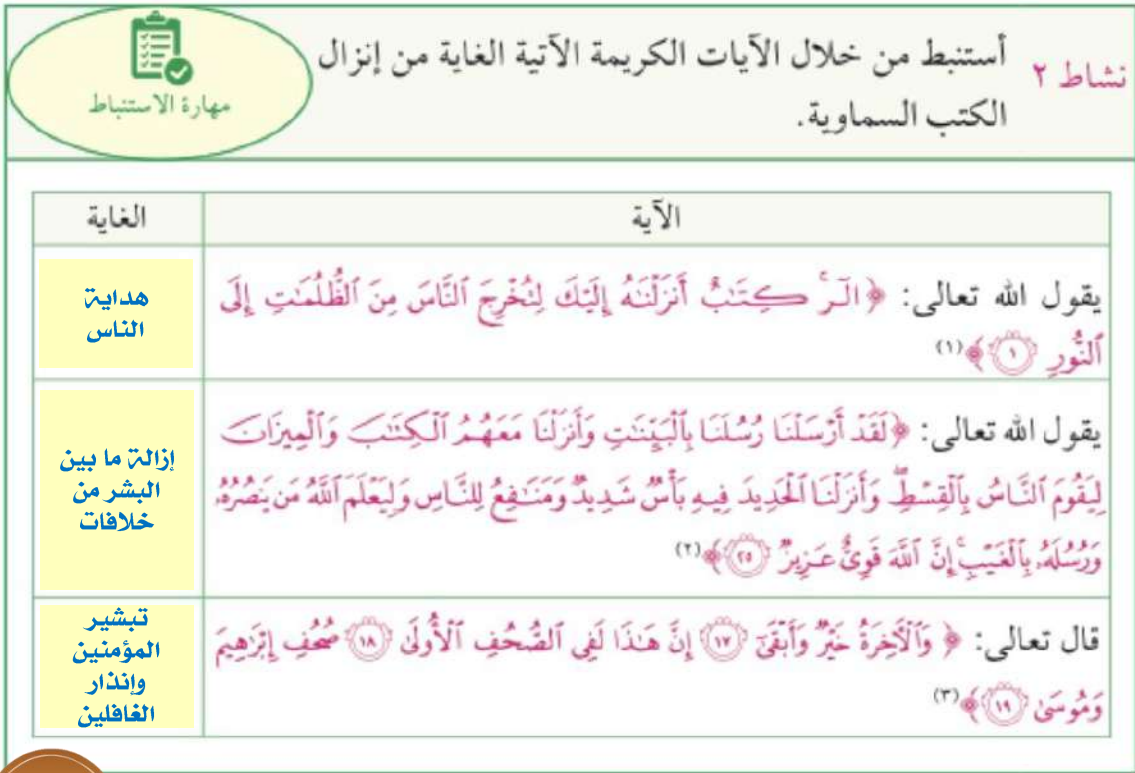 نشاط ٢
أستنبط من خلال الآيات الكريمة الآتية الغاية من إنزال
الكتب السماوية.
مهارة الاستنباط
الآية
الغاية
يقول الله تعالى: ﴿الٓرۚ كِتَٰبٌ أَنزَلْنَٰهُ إِلَيْكَ لِتُخْرِجَ ٱلنَّاسَ مِنَ ٱلظُّلُمَٰتِ إِلَى
ٱلنُّورِ ١﴾(١)
هداية
الناس
يقول الله تعالى: ﴿لَقَدْ أَرْسَلْنَا رُسُلَنَا بِٱلْبَيِّنَٰتِ وَأَنزَلْنَا مَعَهُمُ ٱلْكِتَٰبَ وَٱلْمِيزَانَ
لِيَقُومَ ٱلنَّاسُ بِٱلْقِسْطِۖ وَأَنزَلْنَا ٱلْحَدِيدَ فِيهِ بَأْسٌ شَدِيدٌ وَمَنَٰفِعُ لِلنَّاسِ وَلِيَعْلَمَ ٱللَّهُ مَن يَنصُرُهُۥ
وَرُسُلَهُۥ بِٱلْغَيْبِۚ إِنَّ ٱللَّهَ قَوِىٌّ عَزِيزٌ ٢٥﴾(٢)
إزالة ما بين
البشر من
خلافات
قال تعالى: ﴿وَٱلْآخِرَةُ خَيْرٌ وَأَبْقَىٰٓ ١٧ إِنَّ هَٰذَا لَفِى ٱلصُّحُفِ ٱلْأُولَىٰ ١٨ صُحُفِ إِبْرَٰهِيمَ
وَمُوسَىٰ ١٩﴾(٣)
تبشير
المؤمنين
وإنذار
الغافلين